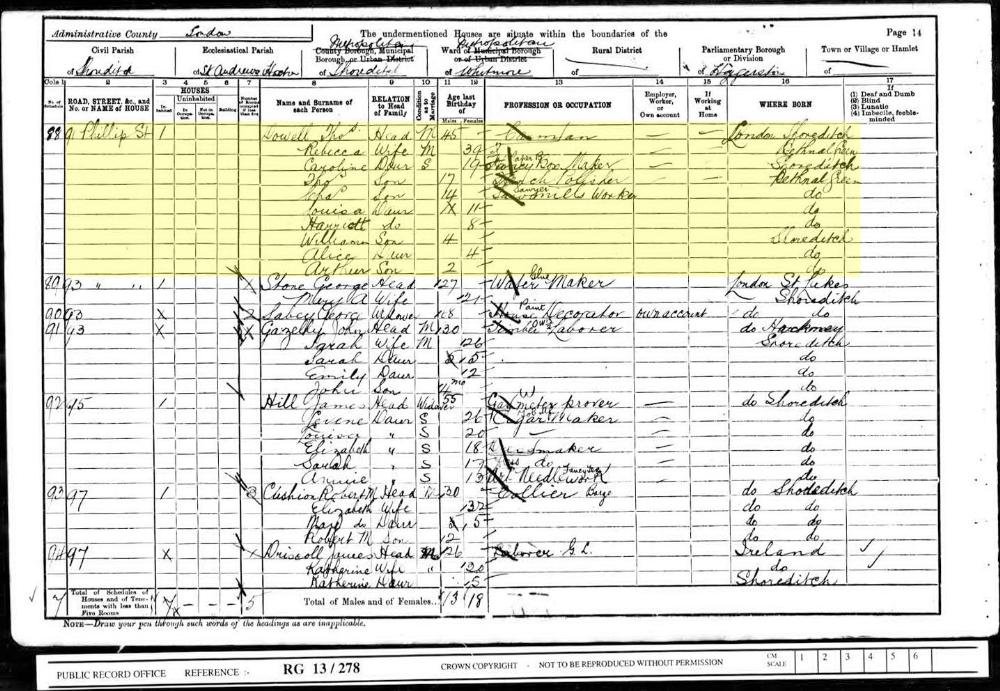 Administrative County London The undermentioned Houses are situate within the boundaries of the Page 14
Civil Parish Ecclesiastical Parish Metropolitan County Borough, Municipal Borough, or Urban District Ward of Metropolitan Municipal Borough or of Urban District Rural District Parliamentary Borough or Division Town or Village or Hamlet
of Shoreditch of St Andrews Hoxton of Shoreditch of Whitmore of of of
1 2 3 4 5 6 7 8 9 10 11 12 13 14 15 16 17
No. of Schedule ROAD, STREET, &c., and No. or NAME of HOUSE HOUSES Inhabited Uninhabited In Occupation Not in Occupation Building Name and Surname of each Person RELATION to Head of Family Condition as to Marriage Age last Birthday of Males Females PROFESSION OR OCCUPATION Employer, Worker, or Own account If Working at Home WHERE BORN If (1) Deaf and Dumb (2) Blind (3) Lunatic (4) Imbecile, feeble-minded
88 91 Phillip St 1 Dowell Thos Head M 45 Carman — — London Shoreditch
Rebecca Wife M 39 — — Bethnal Green
Caroline Daur S 19 Fancy Box Maker Paper — — Shoreditch
Tho Son 17 French Polisher — — Bethnal Green
Chas Son 14 Sawmills Worker Sawyer do
Louisa Daur 11 do
Harriett do 8 do
William Son 4 Shoreditch
Alice Daur 4 do
Arthur Son 2 do
89 93 " " 1 Stone George Head 27 Wafer Maker London St Lukes
Mary A Wife 21 Shoreditch
90 93 X 2 George Widower House Decorator Paint own account — do do
91 93 X Gazeley John Head M 30 Laborer — do Hackney
Sarah Wife M 26 Shoreditch
Sarah Daur 5 do
Emily Daur 2 do
John Son mo do
92 95 1 Hill James Head Widower 55 Gas Meter prover — do Shoreditch
Daur S 26 Cigar Maker — do
Louisa " S 20 — — do
Elizabeth " S 18 do
Sarah " S 17 do do
Annie " S 13 Art Needlework Fancy do
93 97 1 3 Cushion Robert M Head M 30 Collier Barge do Shoreditch
Elizabeth Wife 32 do do
Mary do Daur 5 do do
Robert M Son 2 do do
94 97 X Driscoll James Head M 26 Laborer G.L. Ireland
Katherine Wife " 20 do
Katherine Daur 5 Shoreditch
7 Total of Schedules of Houses and of Tenements with less than Five Rooms 7 — — 5 Total of Males and of Females... 13 18
NOTE—Draw your pen through such words of the headings as are inapplicable.
PUBLIC RECORD OFFICE REFERENCE :- RG 13 / 278 CROWN COPYRIGHT - NOT TO BE REPRODUCED WITHOUT PERMISSION CM SCALE 1 2 3 4 5 6